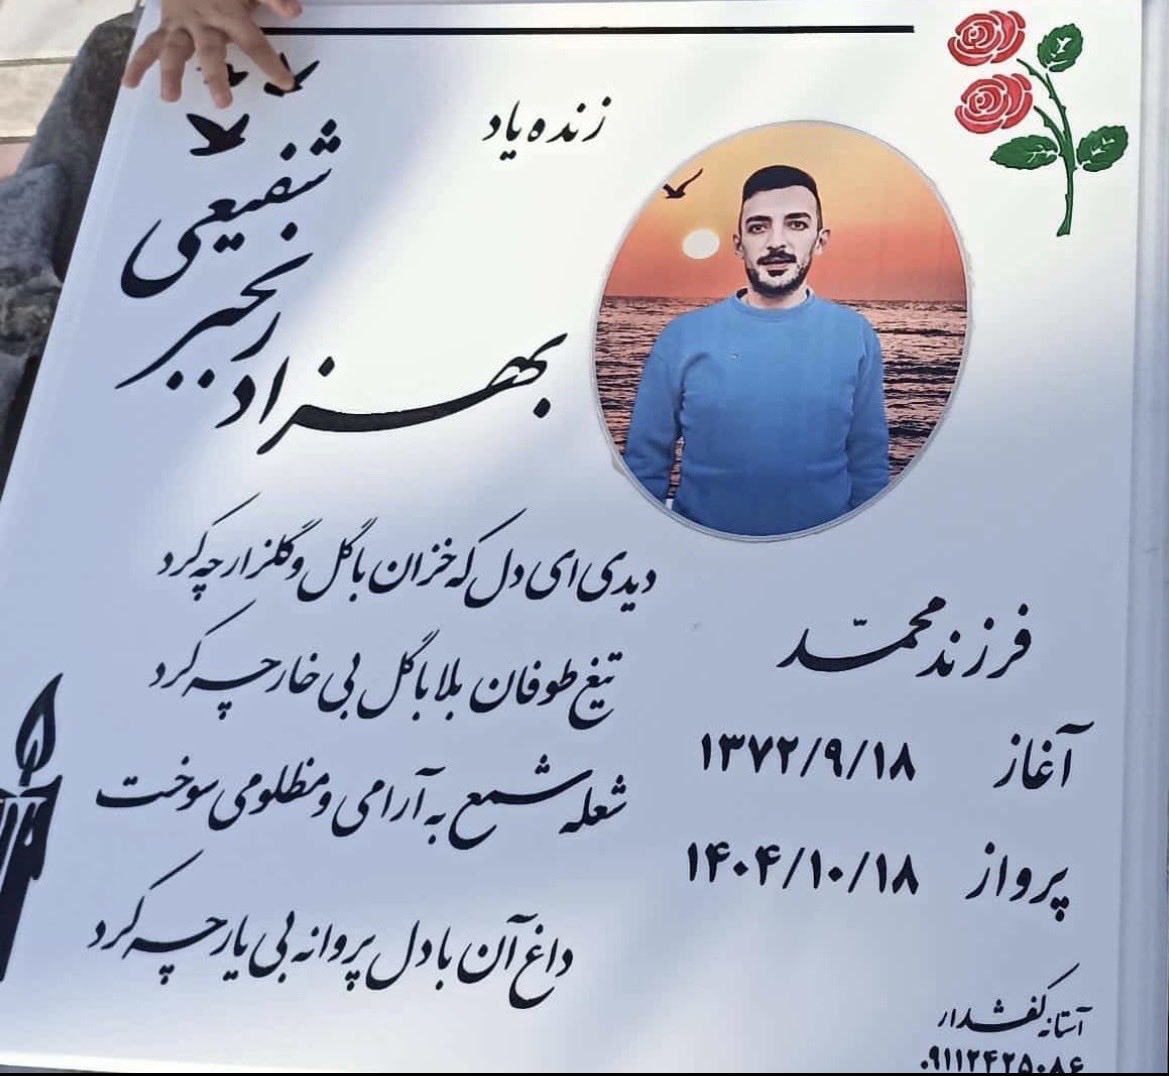 زنده یاد
شفیعی
رنجبر
بهزاد
دیدی ای دل که خزان با گل و گلزار چه کرد
تیغ طوفان بلا با گل بی خار چه کرد
شعله شمع به آرامی و مظلومی سوخت
داغ آن با دل پروانه بی یار چه کرد
فرزند محمّد
آغاز ۱۳۷۲/۹/۱۸
پرواز ۱۴۰۴/۱۰/۱۸
آستانه کفشدار
۰۹۱۱۲۴۲۵۰۸۶